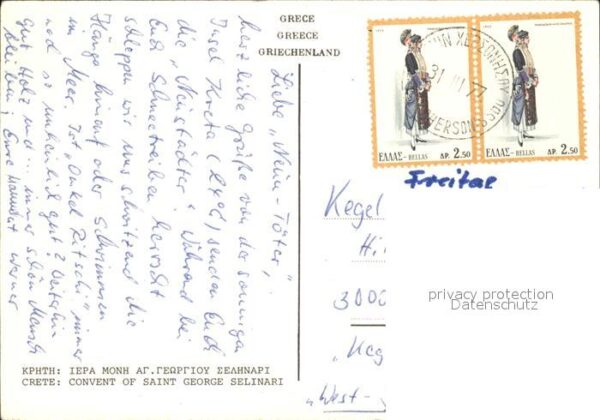 GRECE
GREECE
GRIECHENLAND
Liebe „Nein-Töter",
herzliche Grüße von der sonnigen
Insel Kreta (24°C) senden Euch
die „Neustädter". Während bei
Euch Schneetreiben herrscht
schleppen wir uns schwitzend die
Hänge hinauf oder schwimmen
im Meer. Ist „Onkel Ritschi" immer
noch so gut? Weiterhin
Gut Holz und immer schön
bleiben, Eure Werner
ΚΡΗΤΗ: ΙΕΡΑ ΜΟΝΗ ΑΓ.ΓΕΩΡΓΙΟΥ ΣΕΛΗΝΑΡΙ
CRETE: CONVENT OF SAINT GEORGE SELINARI
ΛΙΜΗΝ ΧΕΡΣΟΝΗΣΟΥ
31 III 77
ΕΛΛΑΣ-HELLAS ΔΡ. 2.50
ΕΛΛΑΣ-HELLAS ΔΡ. 2.50
Freitag
Kegel
Hi
3000
„Keg
„West-
privacy protection
Datenschutz